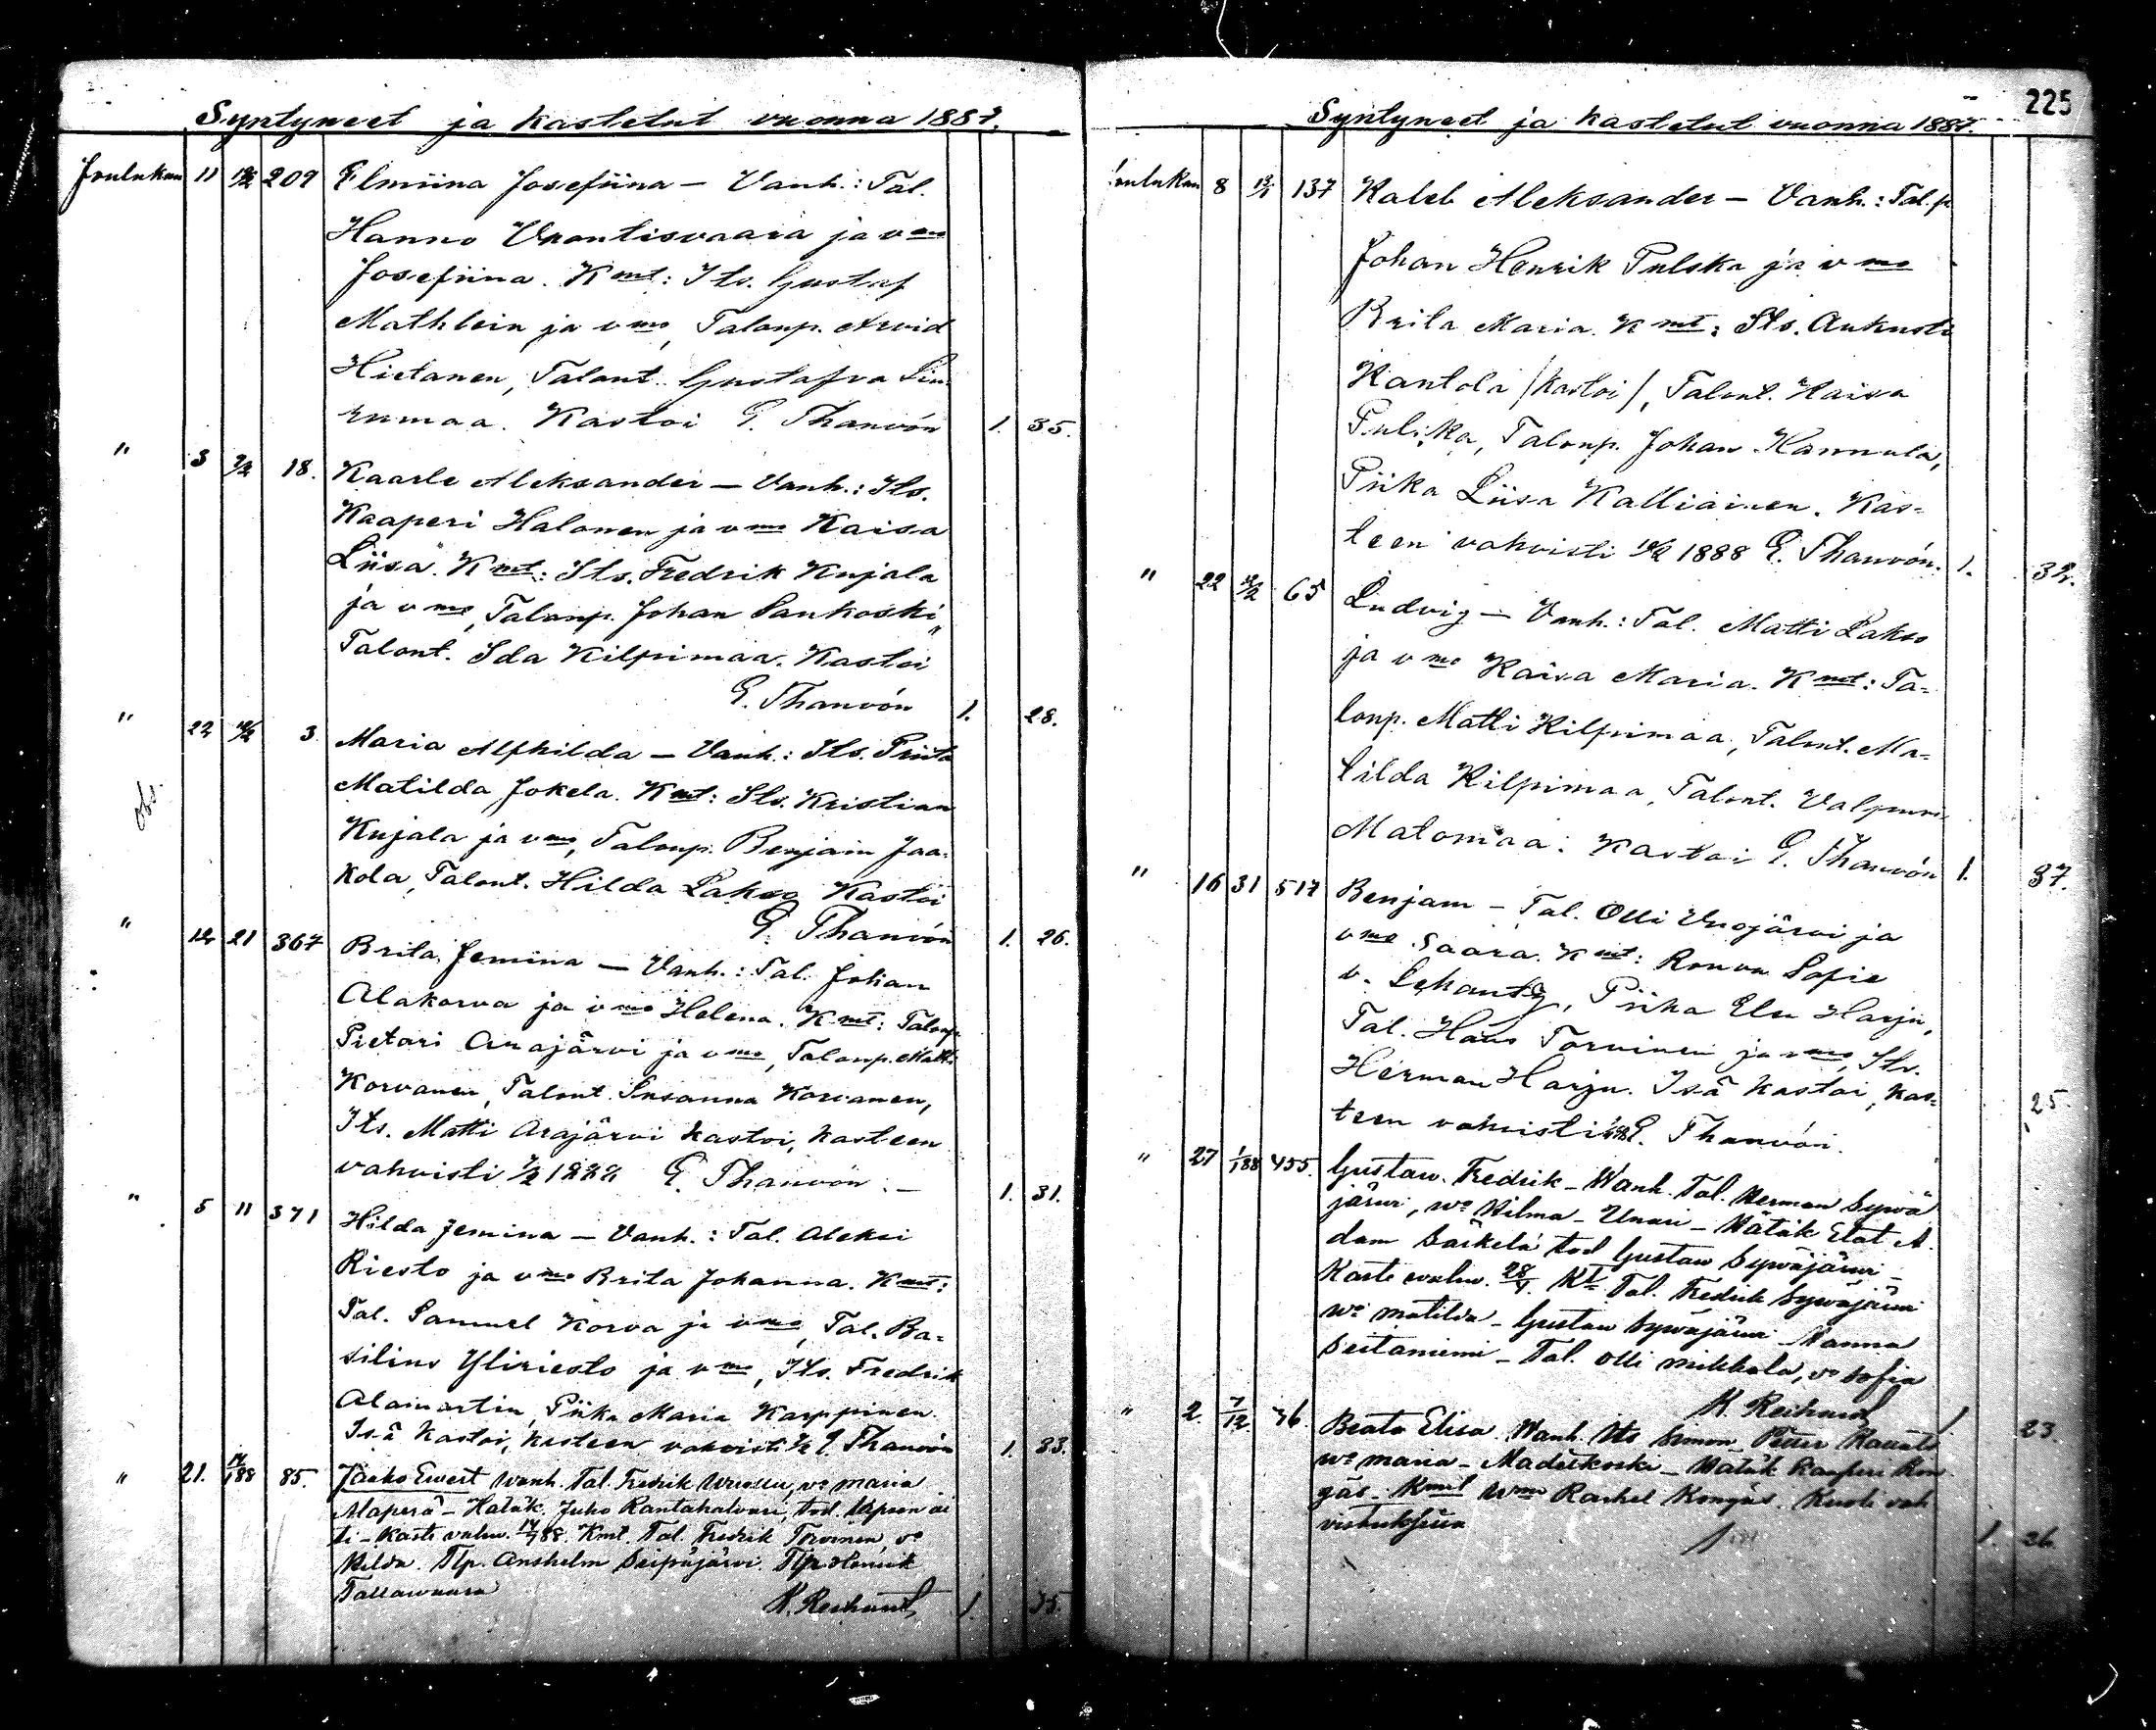 Syntyneet ja kastetut vuonna 1887.
Joulukuu 11 209 Elmiina Josefiina — Vanh.: Tal.
Hanno Vuontisvaara ja vmo
Josefiina. Kmt: Its. Gustaf
Mathlein ja vmo, Talonp. Arvid
Hietanen, Talont. Gustafva
Kastoi E. Thauvón 1. 35.
" 3 2/2 18. Kaarle Aleksander — Vanh.: Its.
Kaaperi Halonen ja vmo Kaisa
Liisa. Kmt: Its. Fredrik Kujala
ja vmo, Talonp. Johan Sankoski,
Talont. Ida Kilpimaa. Kastoi
E. Thauvón 1. 28.
" 22 3 Maria Alphilda — Vanh.: Its. Priita
Matilda Jokela. Kmt: Its. Kristian
Kujala ja vmo, Talonp. Benjam Jaa-
kola, Talont. Hilda Lakso Kastoi
E. Thauvón 1. 26.
" 12 21 367 Brita Jemina — Vanh.: Tal. Johan
Alakorva ja vmo Helena. Kmt: Talonp.
Pietari Arajärvi ja vmo, Talonp. Matti
Korvanen, Talont. Susanna Korvanen,
Its. Matti Arajärvi kastoi, kasteen
vahvisti 1/2 1888 E. Thauvón. — 1. 31.
" 5 11 371 Hilda Jemina — Vanh.: Tal. Aleksi
Riesto ja vmo Brita Johanna. Kmt:
Tal. Samuel Korva ja vmo, Tal. Ba-
silius Yliriesto ja vmo, Its. Fredrik
Alamartin, Piika Maria Karppinen.
Isä kastoi, kasteen vahvisti E. Thauvón 1. 33.
" 21. 85. Jaako Ewert Wanh. Tal. Fredrik vo Maria
Alaperä — Hätäk. Juho Rantahalvari, tod. Lapsen äi
ti — Kaste vahw. Kmt. Tal. Fredrik Tervinen, vo
Hilda. Tlp. Anshelm Seipäjärvi. Tlp. Henrik
Tallavaara K. Reihund 1. 35.
225
Syntyneet ja kastetut vuonna 1887.
Joulukuu 8 137 Kaleb Aleksander — Vanh.: Tal.p.
Johan Henrik Pulska ja vmo
Brita Maria. Kmt: Its. Aukusti
Kantola (kastoi), Talont. Kaisa
Pulska, Talonp. Johan Hannula,
Piika Liisa Kalliainen. Kas-
teen vahvisti 1888 E. Thauvón. 1. 32.
" 22 12/2 65 Ludvig — Vanh.: Tal. Matti Lakso
ja vmo Kaisa Maria. Kmt: Ta-
lonp. Matti Kilpimaa, Talont. Ma-
tilda Kilpimaa, Talont. Valpuri
Matomaa. Kastoi E. Thauvón 1. 37.
" 16 31 517 Benjam — Tal. Olli Unajärvi ja
vmo Saara. Kmt: Rouva Sofie
v. Schantz, Piika Elsa Harju,
Tal. Hans Torvinen ja vmo, Its.
Herman Harju. Isä kastoi, kas-
teen vahvisti E. Thauvón. 25.
" 27 1/188 455. Gustaw Fredrik — Wanh. Tal. Herman Sywä
järwi, wo Hilma — Unari — Hätäk Elat A
dam Särkelä tod Gustaw Sywäjärwi —
Kaste vahw. 28/1. Kt. Tal. Fredrik Sywäjärwi
wo Matilda — Gustaw Sywäjärwi — Nanna
Seitaniemi — Tal. Olli Mikkola, vo Sofia
K. Reihund 1 23.
" 2. 7/12 36. Beata Elisa. Wanh. Its Simon Petter
wo Maria — Madetkoski — Hätäk Kaaperi Kon
gäs. Kmt wmo Rachel Kongäs. Kuoli vah
vistuksetta 1. 26